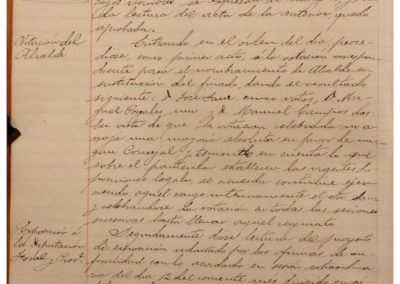 da lectura del acta de la anterior, quedó
aprobada.
Votación del
Alcalde
Entrando en el órden del dia, proce-
diose, como primer acto, á la votacion correspon-
diente para el nombramiento de Alcalde en
sustitución del finado, dando el resultado
siguiente: D. José cinco votos, D. Mi-
guel uno y D. Manuel Campos dos.
En vista de que la votacion celebrada no a-
rroja una mayoria absoluta en favor de nin-
gun Concejal y teniendo en cuenta lo que
sobre el particular establecen las vigentes dis-
posiciones legales, se acuerda continúe ejer-
ciendo aquel cargo interinamente el
y celebrándose la votación en todas las sesiones
sucesivas hasta llenar aquel requisito
Exposición á
la Diputación
Seguidamente diose lectura del proyecto
de exposicion redactado por las oficinas, de con-
formidad con lo acordado en sesión extraordina-
ria del dia 12 del corriente mes